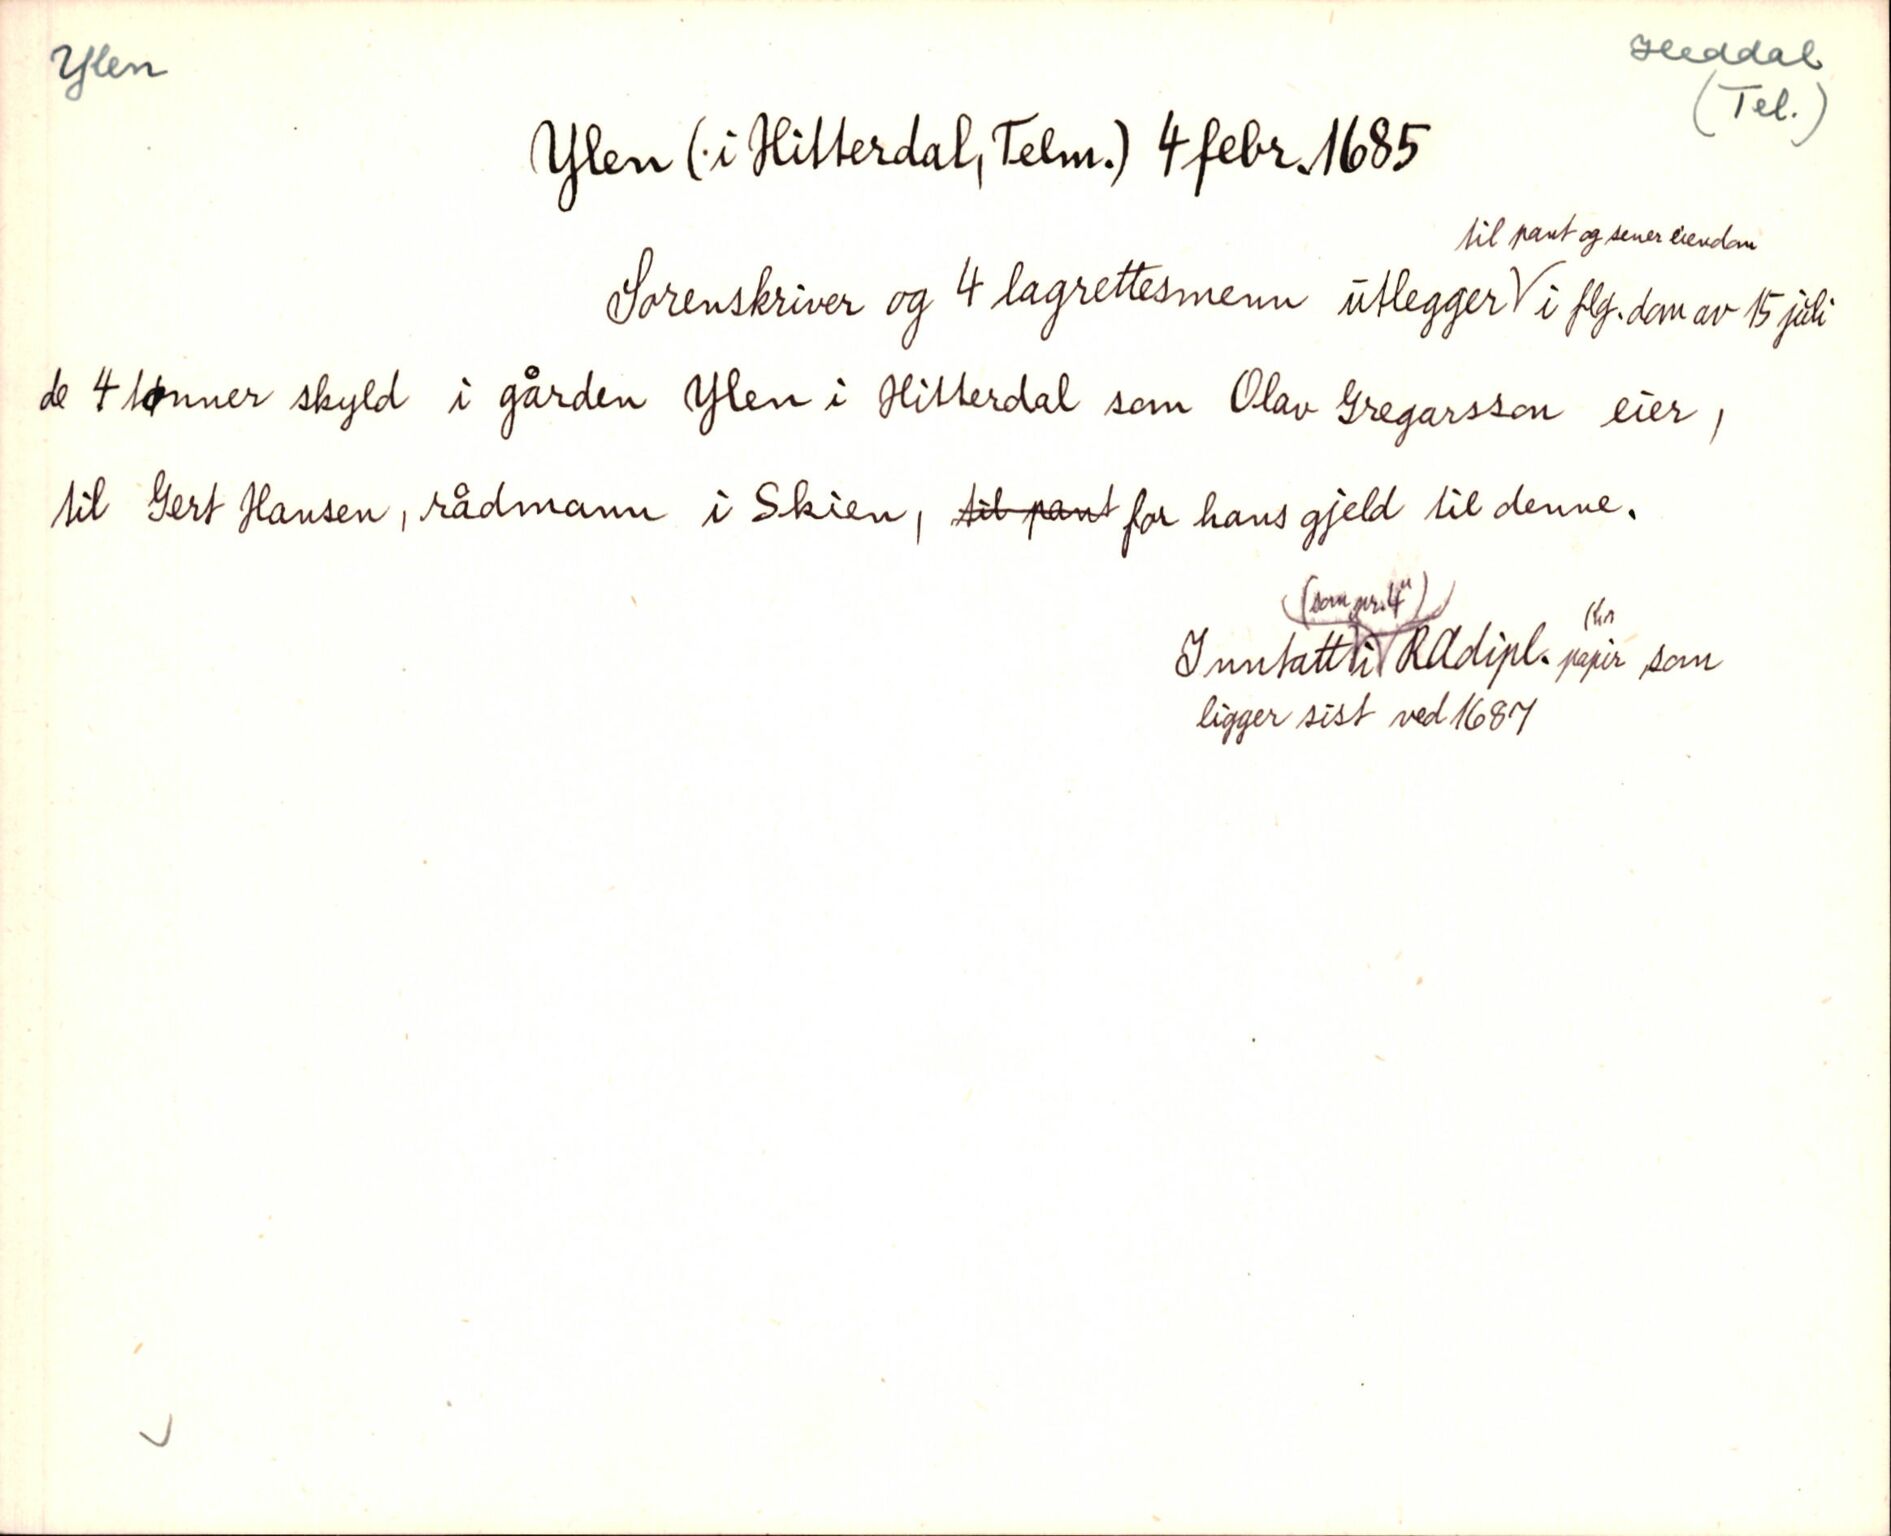 Ylen
Heddal
(Tel.)
Ylen (i Hitterdal, Telm.) 4 febr. 1685
til pant og sener eiendom
Sorenskriver og 4 lagrettesmenn utlegger V i flg. dom av 15 juli
de 4 tønner skyld i gården Ylen i Hitterdal som Olav Gregarsson eier,
til Gert Hansen, rådmann i Skien, til pant for hans gjeld til denne.
(som nr. 4")
Inntatt i RAdipl. papir som
ligger sist ved 1687